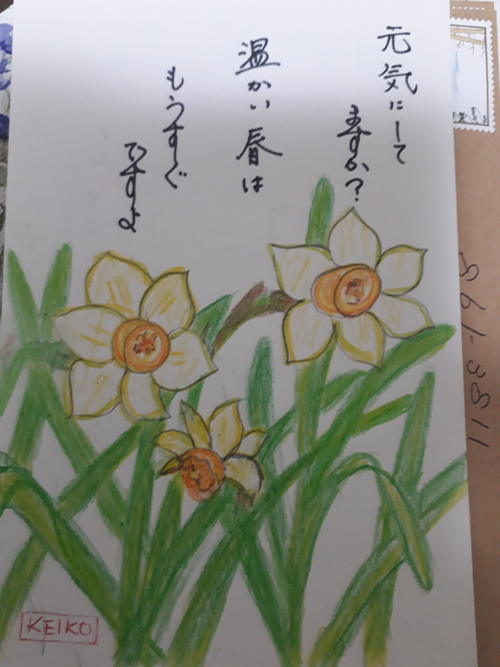 元気にして
ますか?
温かい春は
もうすぐ
ですよ
KEIKO
961-3811